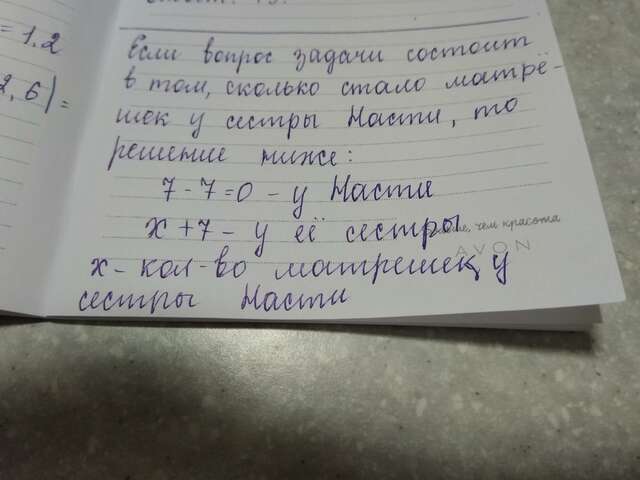 = 1,2
2, 6) =
Если вопрос задачи состоит
в том, сколько стало матрё-
шек у сестры Насти, то
решение ниже:
7 - 7 = 0 - у Насти
х + 7 - у её сестры
чем красота
AVON
х - кол-во матрешек у
сестры Насти